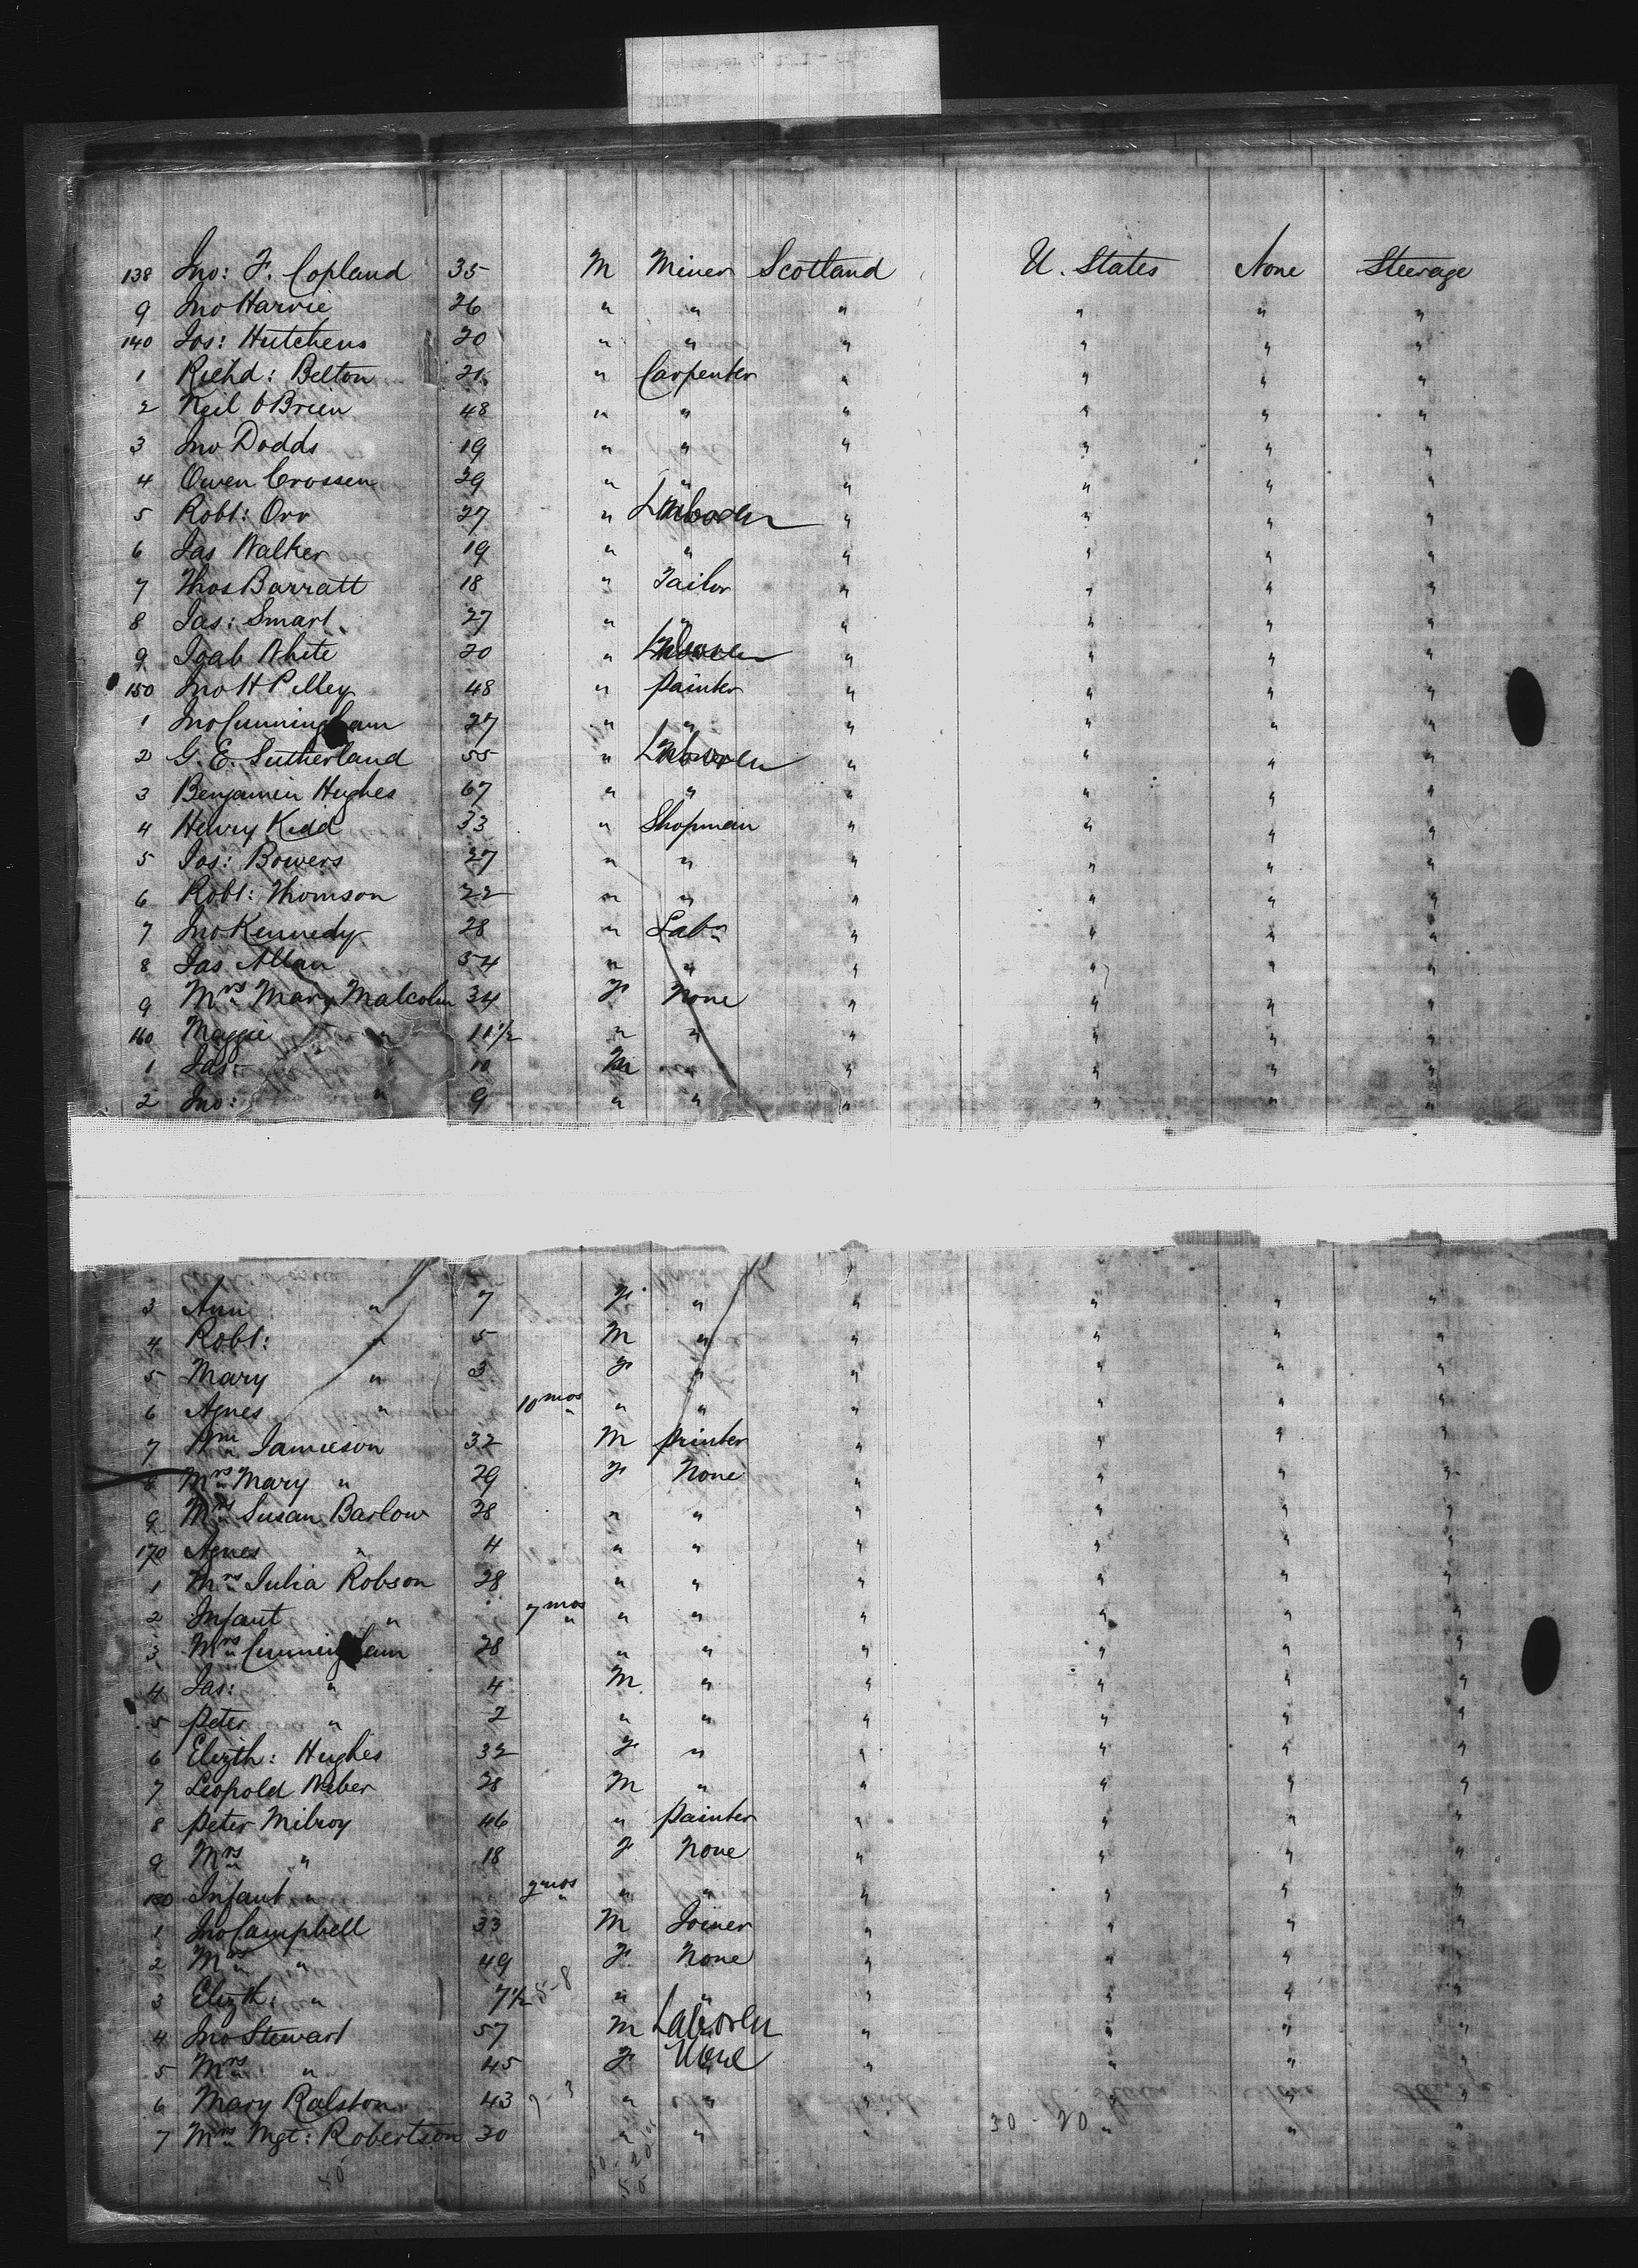 INDIA
138 Jno: F. Copland 35 M Miner Scotland U. States None Steerage
9 Jno Harvie 26 " " " " " "
140 Jos: Hutchens 20 " " " " " "
1 Richd: Belton 21 " Carpenter " " " "
2 Neil O Brien 48 " " " " " "
3 Jno Dodds 19 " " " " " "
4 Owen Crossen 29 " " " " " "
5 Robt: Orr 27 " Laborer " " " "
6 Jas Walker 19 " " " " " "
7 Thos Barratt 18 " Tailor " " " "
8 Jas: Smart 27 " " " " " "
9 Joab White 20 " Laborer " " " "
150 Jno H Pilley 48 " Painter " " " "
1 Jno Cunningham 27 " " " " " "
2 G. E. Sutherland 55 " Laborer " " " "
3 Benjamin Hughes 67 " " " " " "
4 Henry Kidd 33 " Shopman " " " "
5 Jos: Bowers 27 " " " " " "
6 Robt: Thomson 22 " " " " " "
7 Jno Kennedy 28 " Labr " " " "
8 Jas Allan 54 " " " " " "
9 Mrs Mary Malcolm 34 F None " " " "
160 Maggie " 11½ " " " " " "
1 Jas: 10 M " " " "
2 Jno: " 9 " " " " " "
3 Ann " 7 F " " " " "
4 Robt: " 5 M " " " " "
5 Mary " 3 F " " " " "
6 Agnes " 10 mos " " " " " "
7 Wm Jamieson 32 M Printer " " " "
8 Mrs Mary " 29 F None " " " "
9 Mrs Susan Barlow 28 " " " " " "
170 Agnes " 4 " " " " " "
1 Mrs Julia Robson 28 " " " " " "
2 Infant " 7 mos " " " " " "
3 Mrs Cunningham 28 " " " " " "
4 Jas: " 4 M " " " " "
5 Peter " 2 " " " " " "
6 Elizth: Hughes 32 F " " " " "
7 Leopold Weber 28 M " " " " "
8 Peter Milroy 46 " Painter " " " "
9 Mrs " 18 F None " " " "
180 Infant " mos " " " " " "
1 Jno Campbell 33 M Joiner " " " "
2 Mrs " 49 F None " " " "
3 Elizth: " 7½ " " " " " "
4 Jno Stewart 57 M Laborer " " " "
5 Mrs " 45 F None " " " "
6 Mary Ralston 43 " " " " " "
7 Mrs Mgt: Robertson 30 " " " 30 - 20 " " "